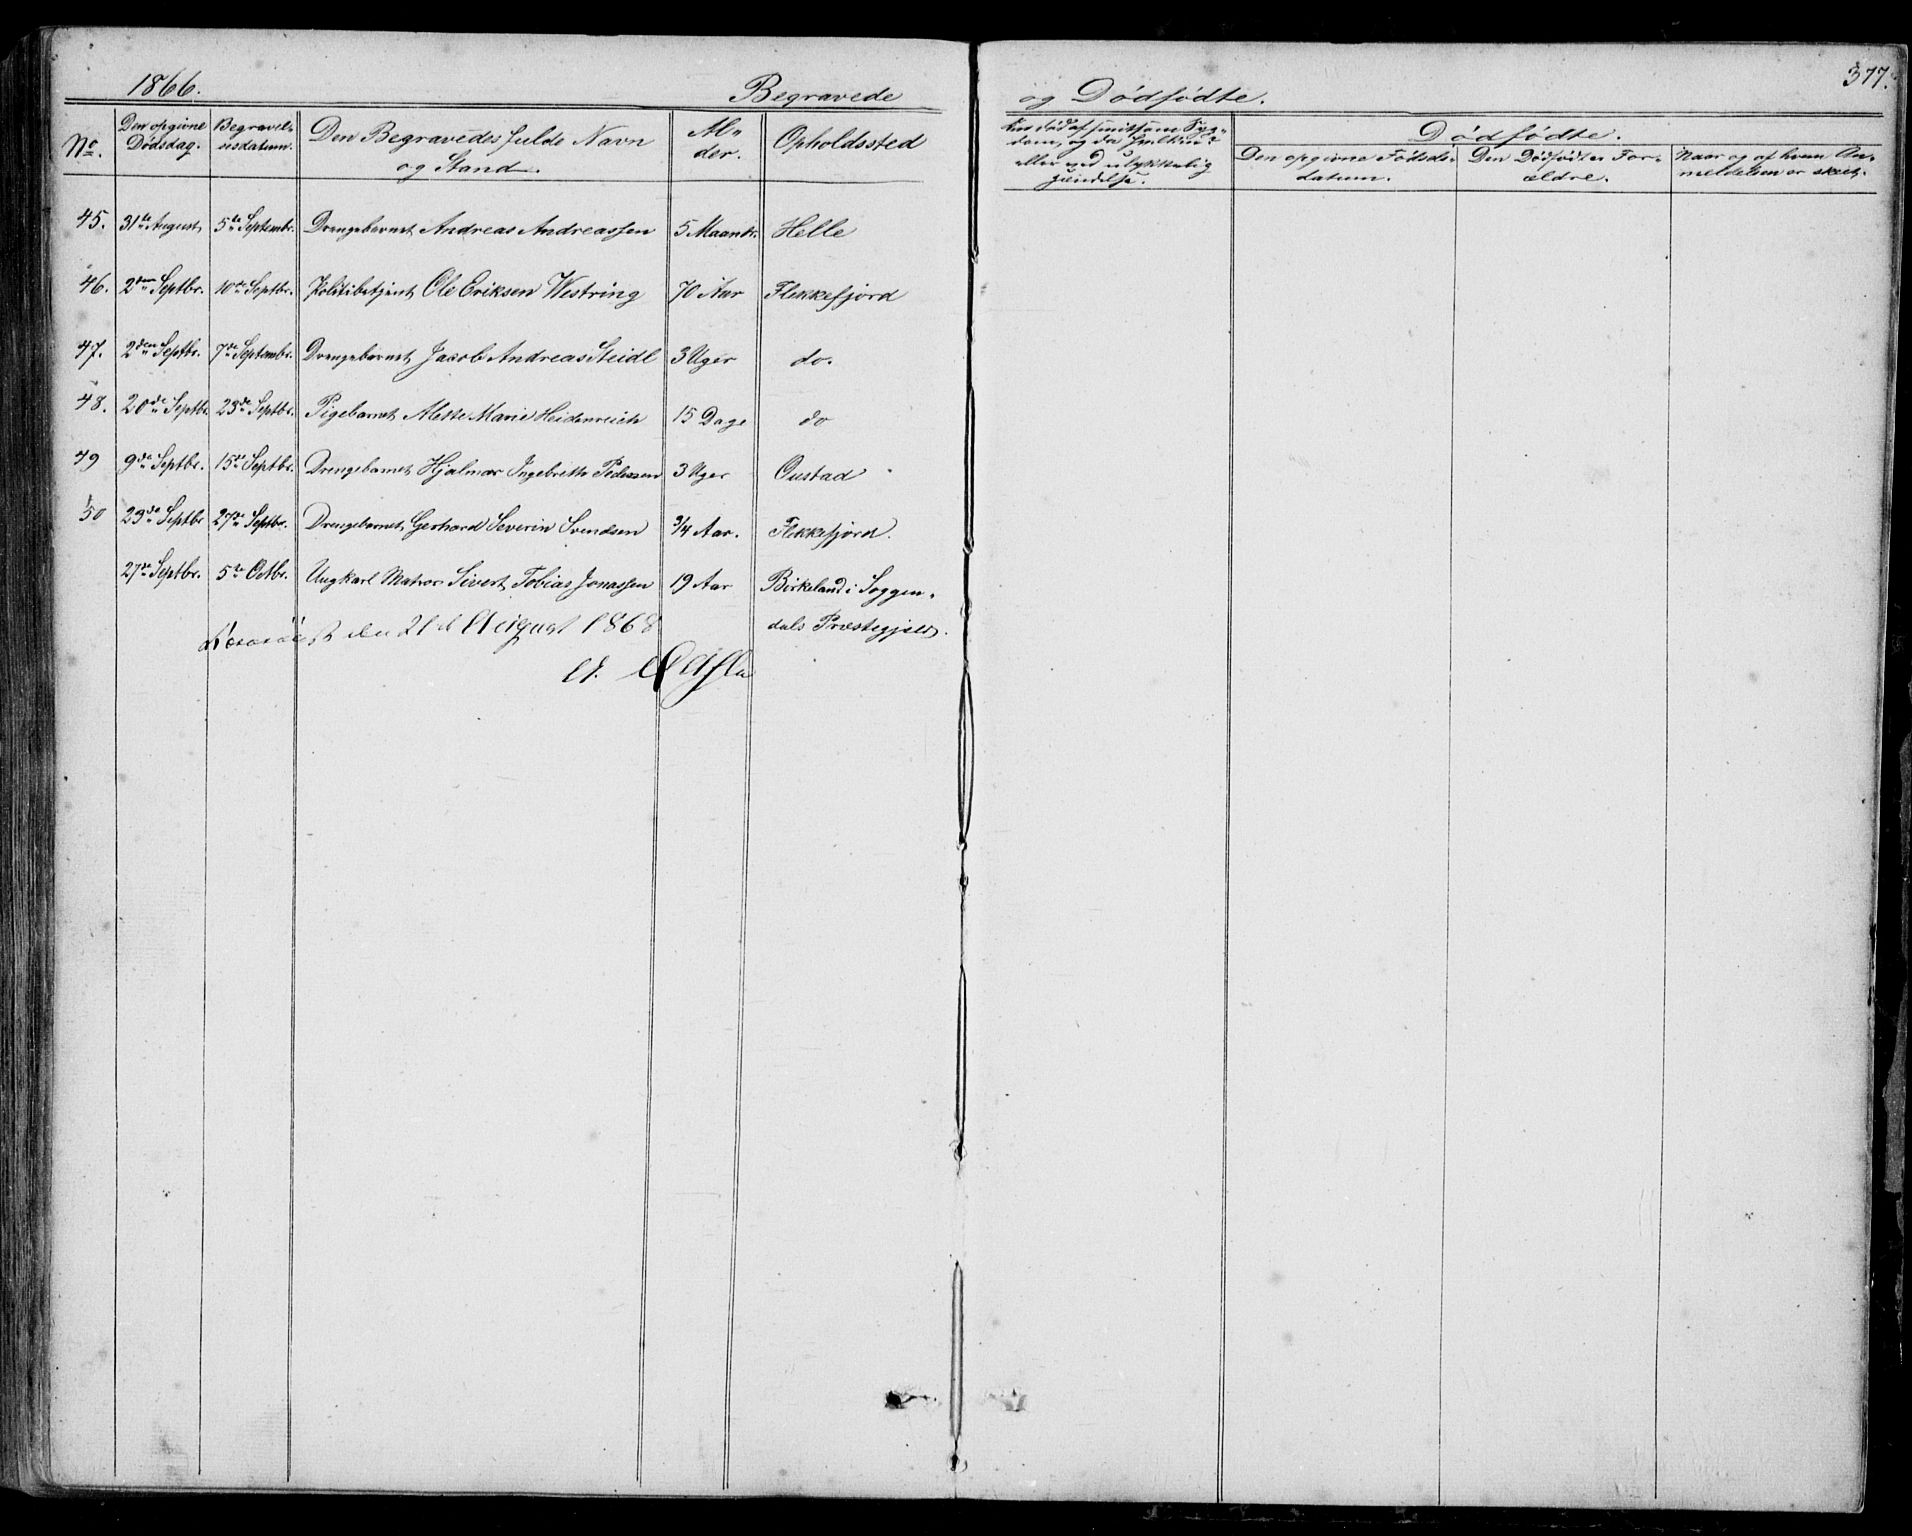 1866.
Begravede
og Dødfødte.
377.
No.
Den opgivne Dødsdag.
Begravelsesdatum.
Den Begravedes fulde Navn og Stand.
Alder.
Opholdssted
Om død af smitsom Sygdom, og da hvilken? eller ved ulykkelig Hændelse.
Dødfødte.
Den opgivne Fødselsdatum.
Den Dødfødtes Forældre.
Naar og af hvem Anmeldelsen er skeet.
45. 31te August 5te Septembr. Drengebarnet Andreas Andreassen 5 Maander Helle
46. 2den Septbr. 10de Septbr. Politibetjent Ole Eriksen Westring 70 Aar Flekkefjord
47. 2den Septbr. 7de Septembr. Drengebarnet Jacob Andreas Steidl 3 Uger do.
48. 20de Septbr. 23de Septbr. Pigebarnet Mette Marie Heidenreich 15 Dage do
49 9de Septbr. 15de Septbr. Drengebarnet Hjalmar Ingebreth Pedersen 3 Uger Oustad
50 23de Septbr 27de Septbr. Drengebarnet Gerhard Severin Svendsen 3/4 Aar. Flekkefjord.
27de Septbr. 5te Octbr. Ungkarl Matros Sivert Tobias Jonassen 19 Aar Birkeland i Soggendals Præstegjeld.
den 21d August 1868